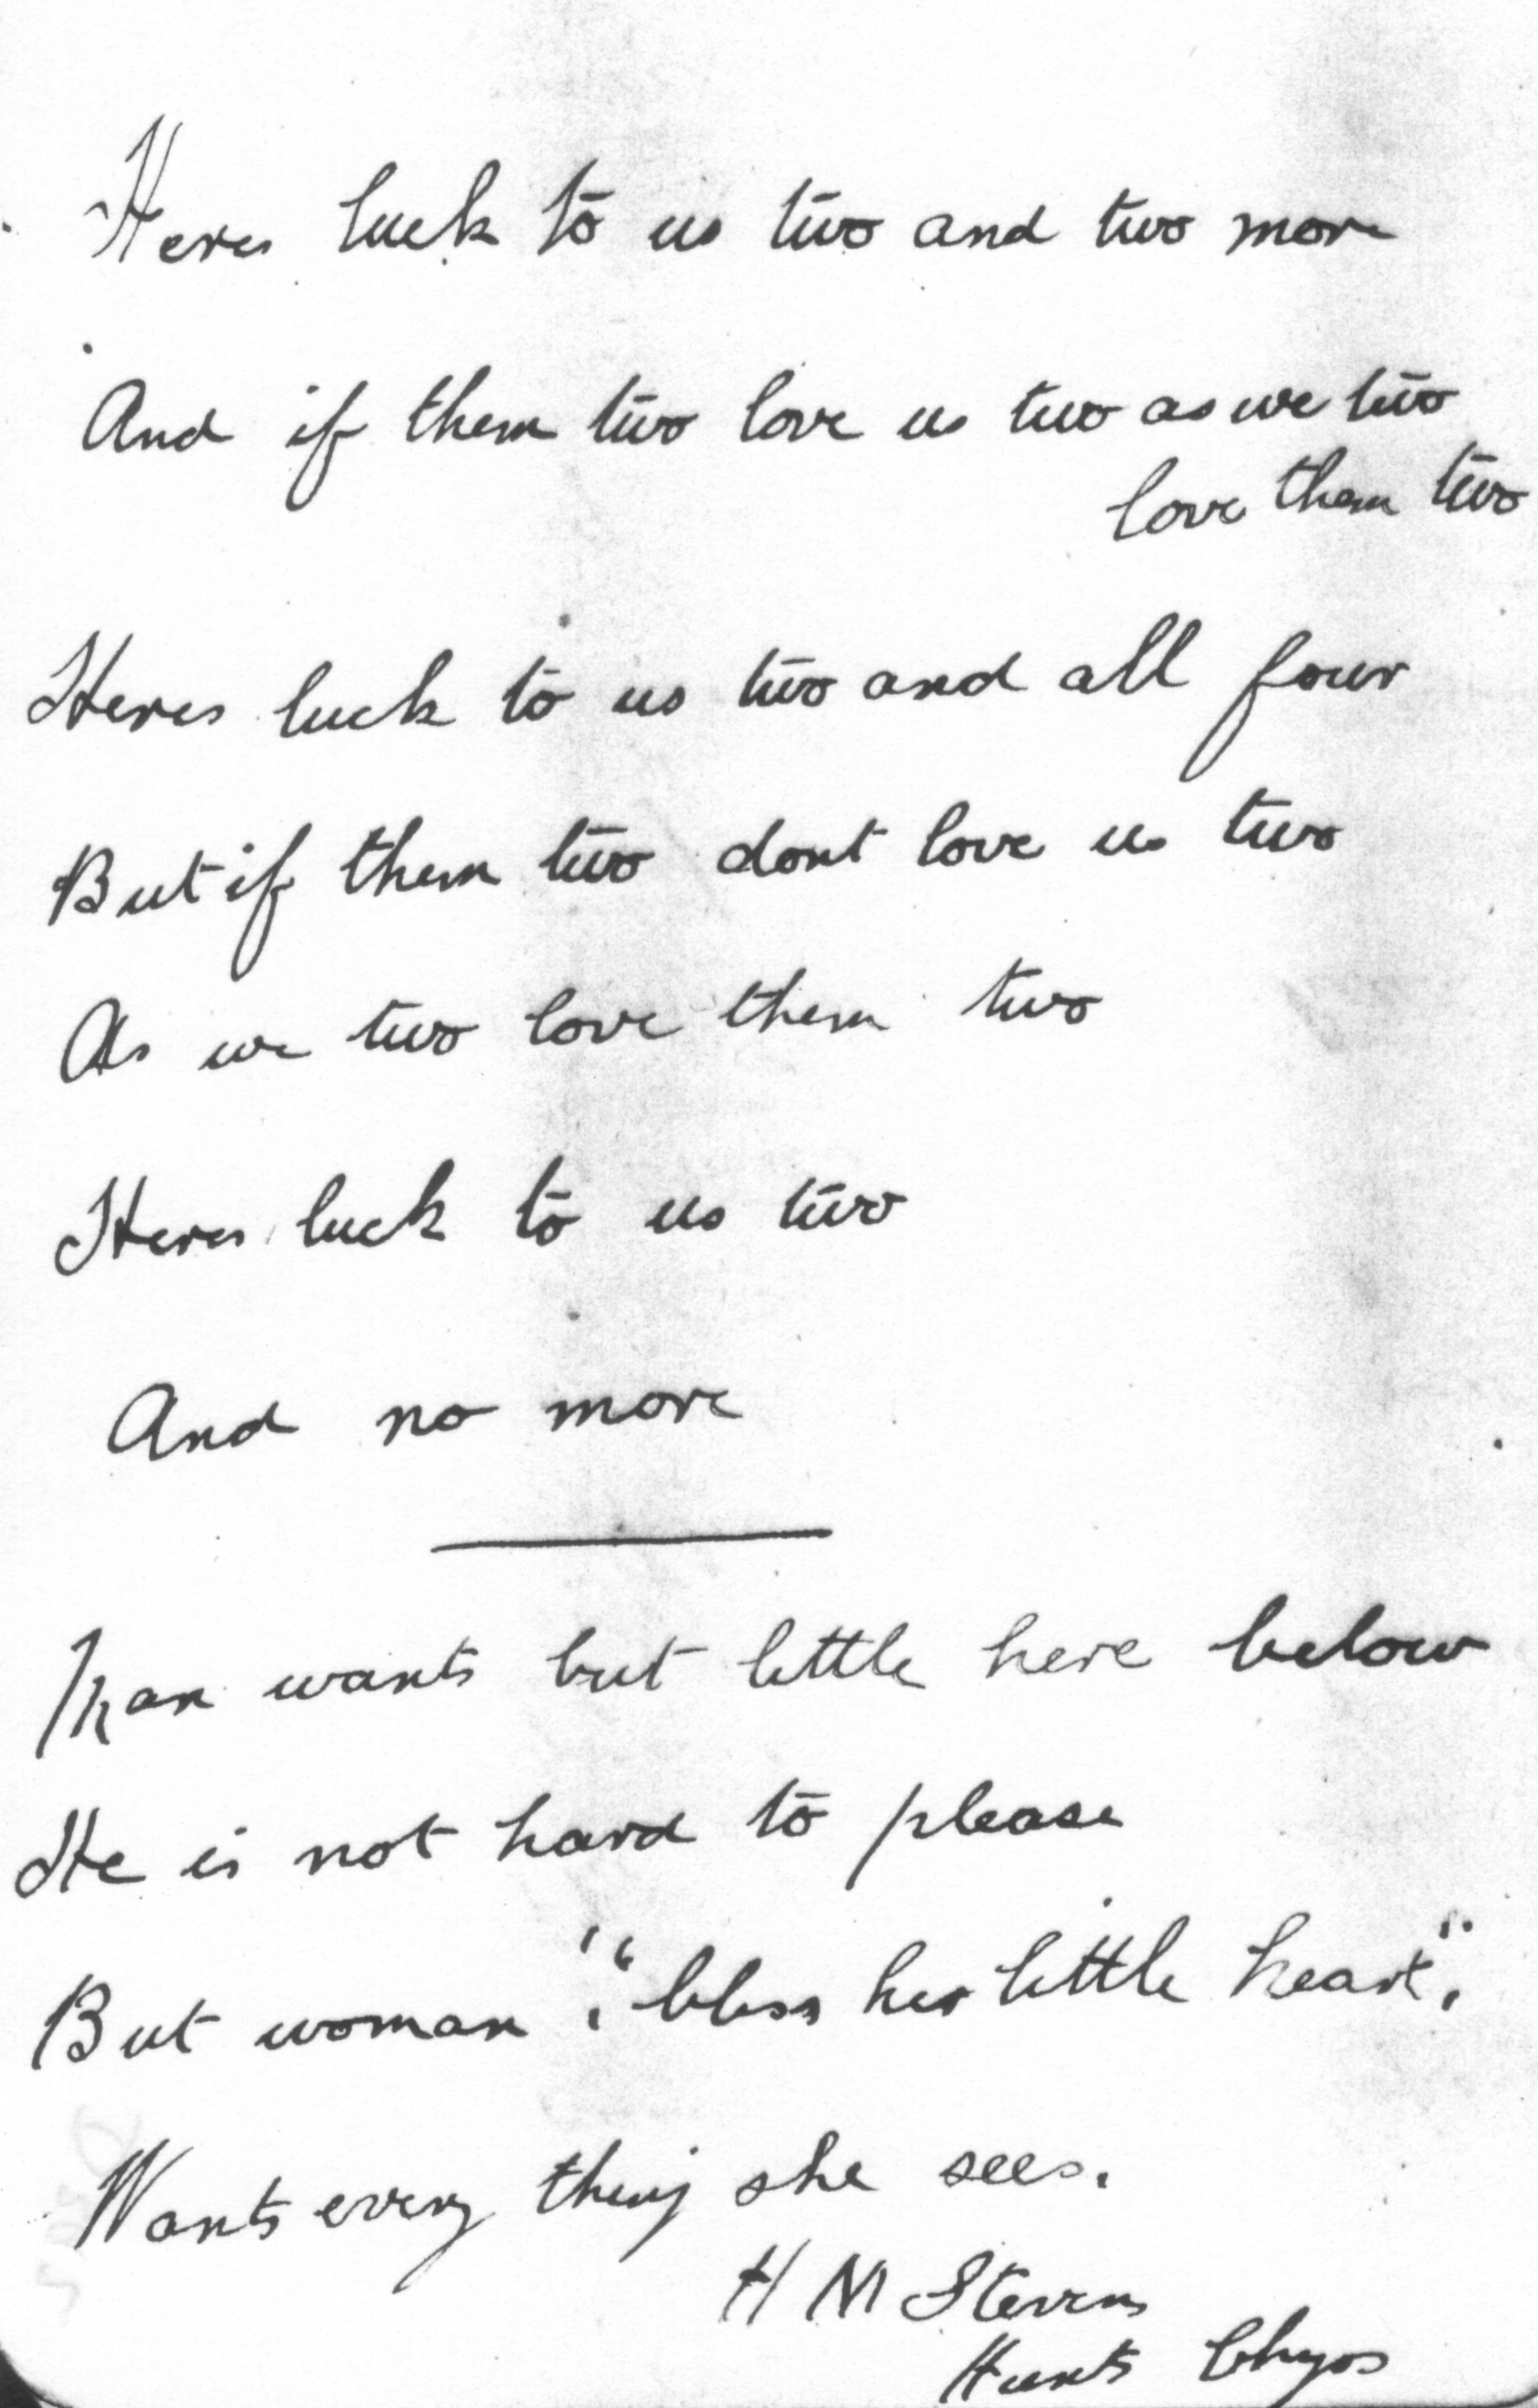 Heres luck to us two and two more
And if them two love us two as we two
love them two
Heres luck to us two and all four
But if them two dont love us two
As we two love them two
Heres luck to us two
And no more
Man wants but little here below
He is not hard to please
But woman, "bless her little heart",
Wants every thing she sees.
H M Stevens
Hunts